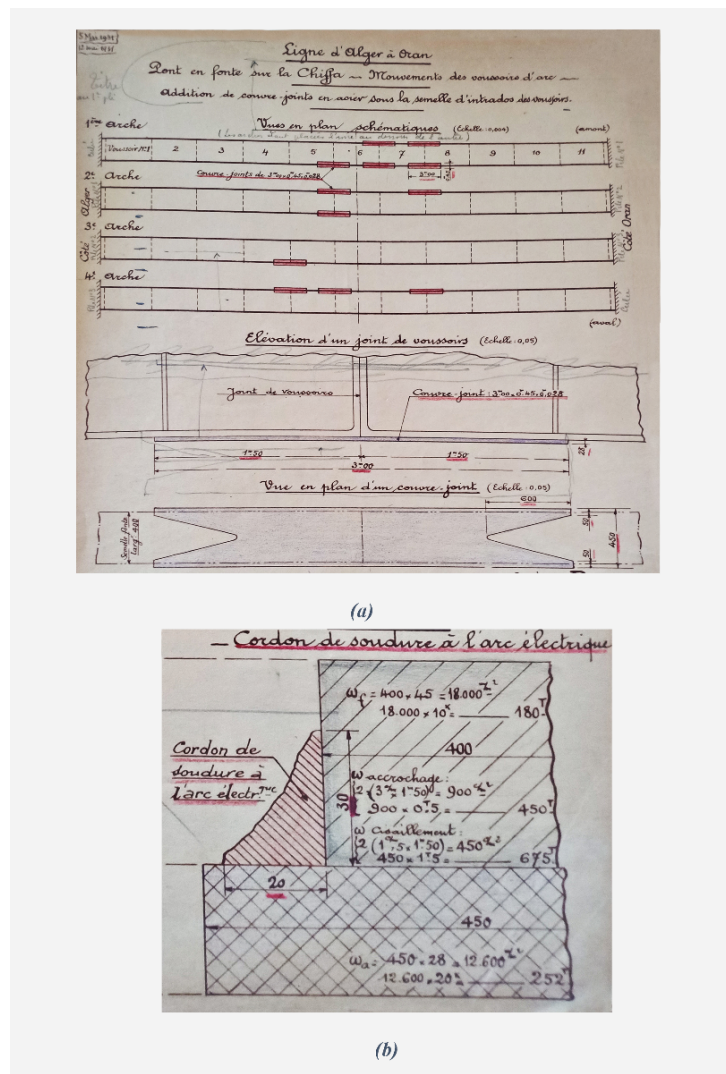 5 Mai 1931
12 Mai 1931
Ligne d'Alger à Oran
Pont en fonte sur la Chiffa — Mouvements des voussoirs d'arc —
Addition de couvre-joints en acier sous la semelle d'intrados des voussoirs.
Vues en plan schématiques (Echelle: 0,005)
(amont)
1ère Arche
Voussoir N°1 2 3 4 5 6 7 8 9 10 11
Couvre-joints de 3m00 x 0m45 x 0,028
3m00
2e Arche
Côté Alger
Côté Oran
3e Arche
4e Arche
(aval)
Elévation d'un joint de voussoirs (Echelle: 0,05)
Joint de voussoirs
Couvre-joint: 3m00 x 0m45 x 0m028
28
1m50 1m50
3m00
Vue en plan d'un couvre-joint (Echelle: 0,05)
600
Semelle fonte
larg. 400
50
450
50
(a)
— Cordon de soudure à l'arc électrique
ωf = 400 x 45 = 18.000
18.000 x 10 = 180T
400
Cordon de
soudure à
l'arc électrique
30
ω accrochage:
2 x (3 x 1m50) = 900
900 x 0T5 = 450T
ω Cisaillement:
2 (1,5 x 1m50) = 450
450 x 1T5 = 675T
20
450
ωa = 450 x 28 = 12.600
12.600 x 20 = 252T
(b)